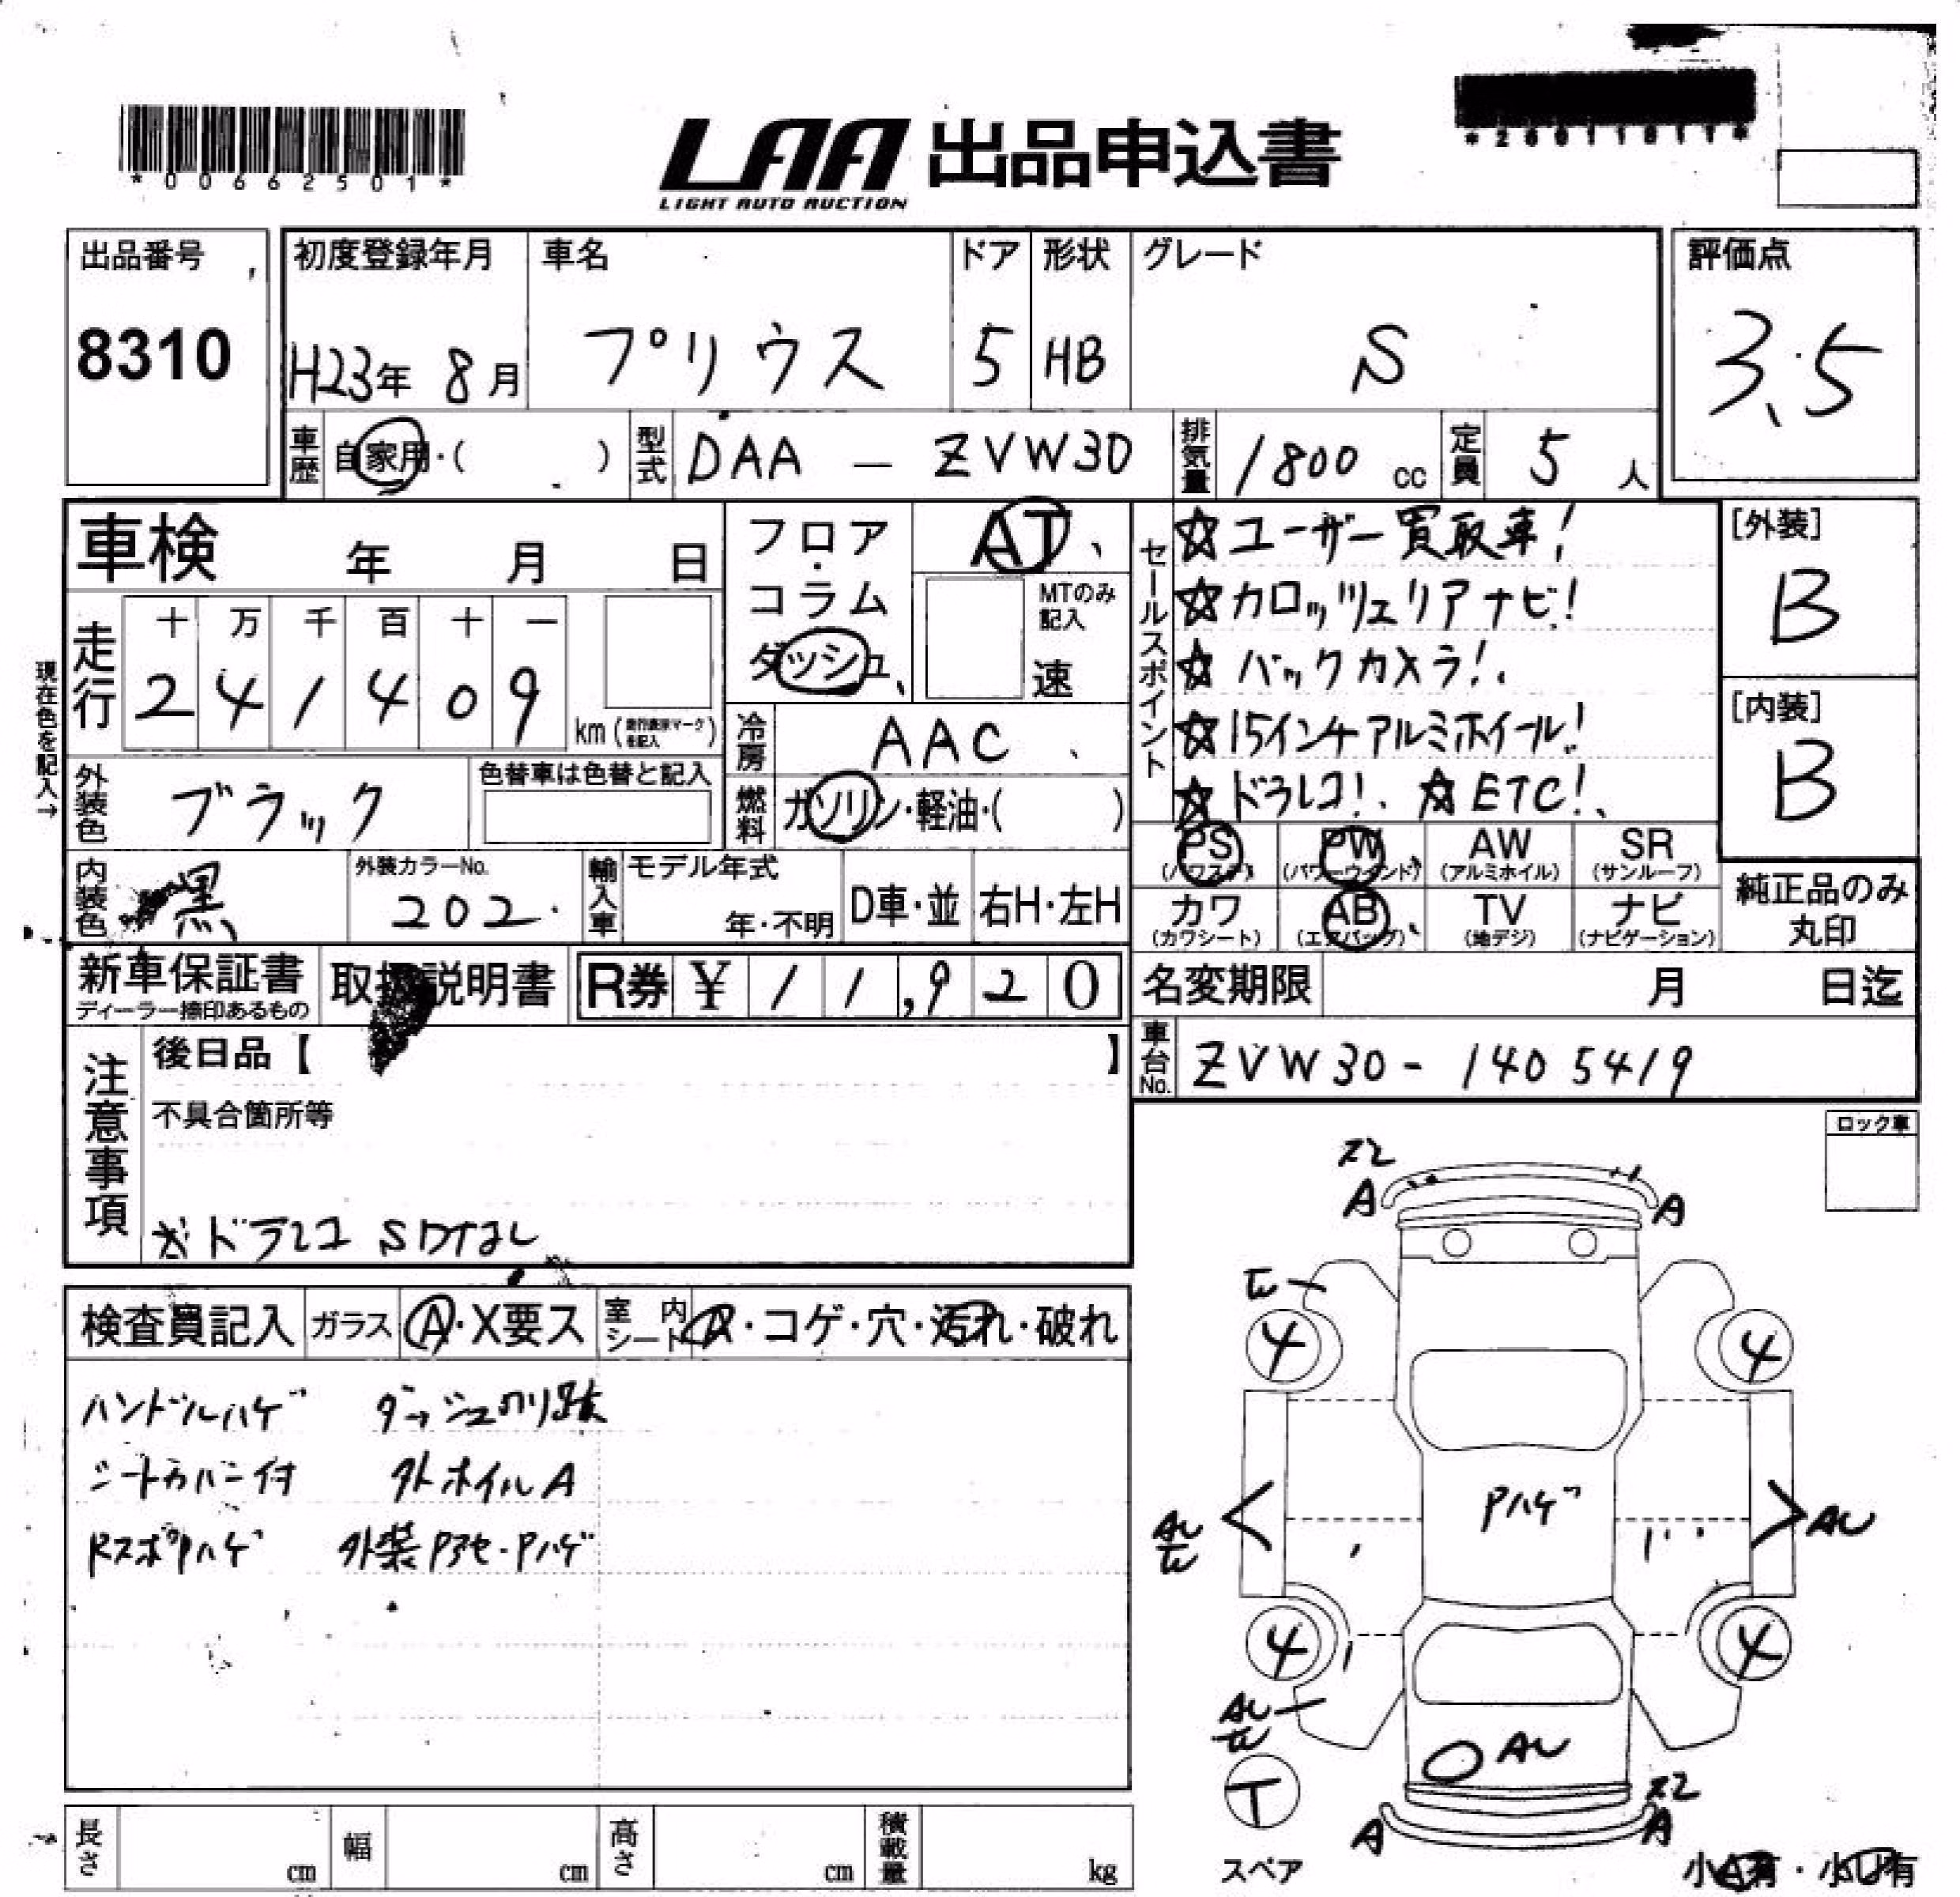 *00662501*
LAA 出品申込書
LIGHT AUTO AUCTION
*26011011*
出品番号
8310
初度登録年月
H23年 8月
車名
プリウス
ドア
5
形状
HB
グレード
S
評価点
3.5
車歴
自家用・( )
型式
DAA - ZVW30
排気量
1800 cc
定員
5 人
車検 年 月 日
フロア・
コラム
ダッシュ
AT
MTのみ
記入
速
セールスポイント
☆ユーザー買取車!
☆カロッツェリアナビ!
☆バックカメラ!
☆15インチアルミホイール!
☆ドラレコ! ☆ETC!
[外装]
B
[内装]
B
現在色を記入→
走行
十 万 千 百 十 一
2 4 1 4 0 9
km
冷房
AAC
燃料
ガソリン・軽油・( )
外装色
ブラック
色替車は色替と記入
PS
(パワステ)
PW
(パワーウインド)
AW
(アルミホイル)
SR
(サンルーフ)
カワ
(カワシート)
AB
(エアバッグ)
TV
(地デジ)
ナビ
(ナビゲーション)
純正品のみ
丸印
内装色
黒
外装カラーNo.
202
輸入車
モデル年式
年・不明
D車・並
右H・左H
新車保証書
ディーラー捺印あるもの
取扱説明書
R券 ¥ 1 1,9 2 0
名変期限 月 日迄
車台No.
ZVW30-1405419
注意事項
後日品【 】
不具合箇所等
ドラレコ
ロック車
検査員記入
ガラス
A・X要ス
室内
シート
A・コゲ・穴・汚れ・破れ
ハンドルハゲ ダッシュノリ跡
シートカバー付 外ホイルA
RスポPハゲ 外装Pアセ・Pハゲ
A
A
4
4
Pハゲ
AU
AU
4
4
AU
AU
T
スペア
A
A
小A有・小U有
長さ cm
幅 cm
高さ cm
積載量 kg